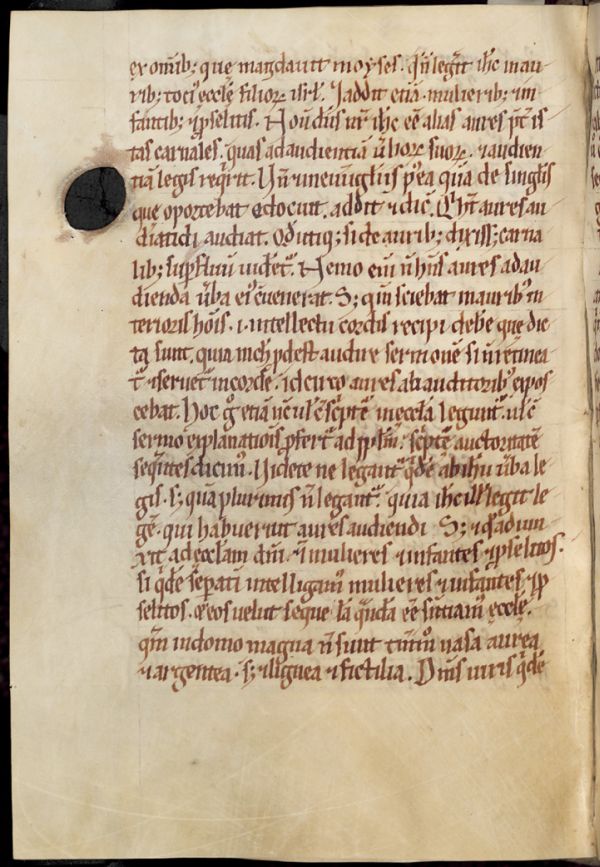 ex omib; que mandavit moyses. qn̄ legit ihc in au
rib; toci' eccłę filior isrł. Addit etiā mulierib; in
fantib; & pselitis. Non dūs ur̄ ihc eē alias aures pt̄ is
tas carnales. quas ad audientiā ūbor suor. & audien
tiā legis reqrit. Vn̄ & in euuglīis p'ea quā de singlis
que oportebat edocuit. addit & dic̄. Qui ht̄ aures au
diendi audiat. Odittiq; si de aurib; dixiss; carna
lib; supfluū uidet̄. Nemo eni n̄ hn̄s aures ad au
dienda ūba ei' c̄uenerat. S; qm̄ sciebat in aurib' in
terioris hōis. i. intellectu cordis recipi debe que dic
ta sunt. quia nichil pdest audire sermonē si n̄ retinea
t̄ & seruet̄ in corde. idcirco aures ab auditorib; expos
cebat. Hoc g̊ etiā nc̄ uł c̄ sc̄ptę in eccła legunt̄. uł c̄
sermo explanatiois pfert̄ ad ppłm. sc̄ptę auctoritatē
seqntes dicim'. Videte ne legant̄ qde ab ihu ūba le
gis. s; quā plurimis n̄ legant̄. quia ihc illis legit le
gē. qui habuerint aures audiendi. S; & qd adiun
xit. ad eccłam dnī. & mulieres & infantes & pselitos.
si qde sepati intelligam' mulieres & infantes & p
selitos. & eos uelut seque la quda eē sentiam' ęccłę.
qm̄ in domo magna n̄ sunt tantm̄ uasa aurea
& argentea. s; & lignea & fictilia. Dn̄s uiris qde